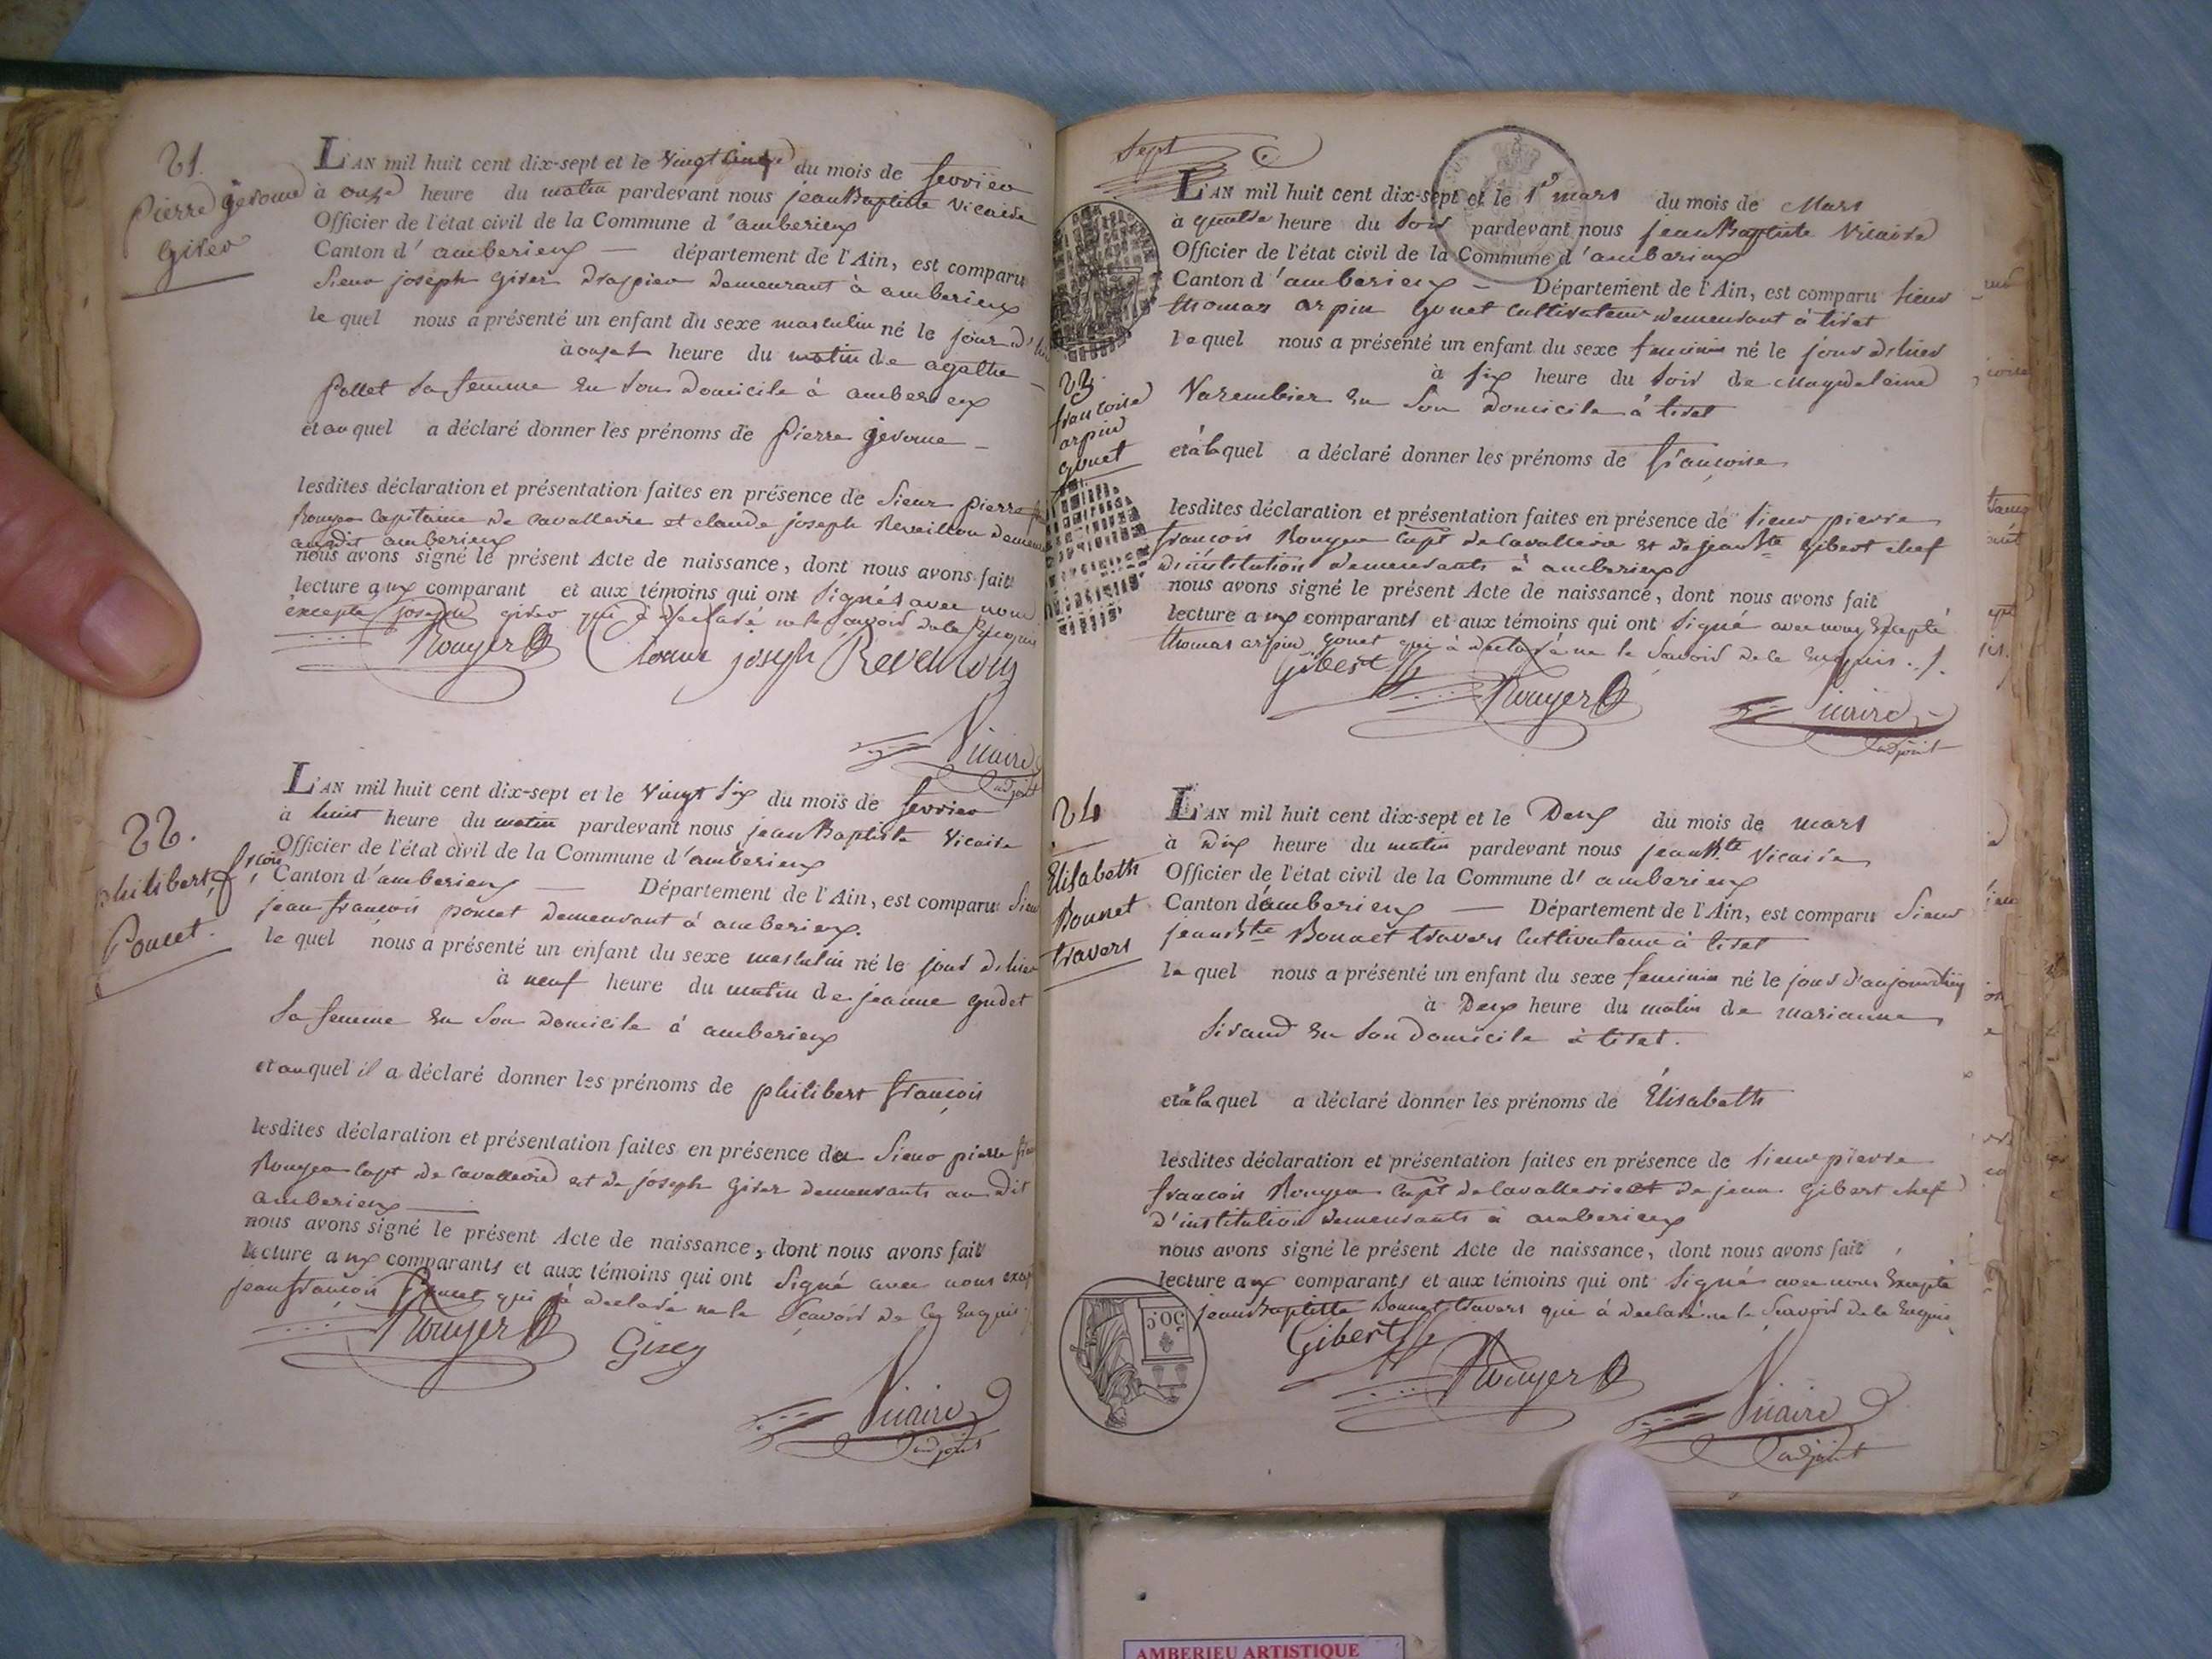 21.
Pierre gerome
Girer
L'AN mil huit cent dix-sept et le vingt cinq du mois de fevrier
à onze heure du matin pardevant nous jean Baptiste Vicaire
Officier de l'état civil de la Commune d'amberieux
Canton d'amberieux — département de l'Ain, est comparu
Sieur joseph Girer Drapier demeurant à amberieux
le quel nous a présenté un enfant du sexe masculin né le jour d'
à onze heure du matin de agathe
pollet sa femme en son Domicile à amberieux
et au quel a déclaré donner les prénoms de Pierre gerome
lesdites déclaration et présentation faites en présence de Sieur pierre
Rouyer Capitaine de Cavallerie et claude joseph Reveillon
audit amberieux
nous avons signé le présent Acte de naissance, dont nous avons fait
lecture aux comparant et aux témoins qui ont signés avec nous
excepte joseph girer qui à declaré ne le savoir de ce Enquis
Rouyer Claude joseph Reveillon
Vicaire
adjoint
22.
philibert fçois
Poncet.
L'AN mil huit cent dix-sept et le vingt six du mois de fevrier
à huit heure du matin pardevant nous jean Baptiste Vicaire
Officier de l'état civil de la Commune d'amberieux
Canton d'amberieux — Département de l'Ain, est comparu Sieur
jean francois poncet demeurant à amberieux.
le quel nous a présenté un enfant du sexe masculin né le jour d'hier
à neuf heure du matin de jeanne gudet
sa femme en son Domicile à amberieux
et au quel il a déclaré donner les prénoms de philibert françois
lesdites déclaration et présentation faites en présence de Sieur pierre
Rouyer Capt de Cavallerie et de joseph Girer demeurants au dit
amberieux
nous avons signé le présent Acte de naissance, dont nous avons fait
lecture aux comparants et aux témoins qui ont signé avec nous
jean francois Poncet qui à declaré ne le sçavoir de ce Enquis
Rouyer Girer
Vicaire
adjoint
Sept
23.
francoise
arpin
gonet
L'AN mil huit cent dix-sept et le 1er mars du mois de Mars
à quatre heure du soir pardevant nous jean Baptiste Vicaire
Officier de l'état civil de la Commune d'amberieux
Canton d'amberieux — Département de l'Ain, est comparu sieur
thomas arpin Gonet Cultivateur demeurant à tiret
le quel nous a présenté un enfant du sexe feminin né le jour d'hier
à six heure du soir de Magdeleine
Varembier en son Domicile à tiret
et à la quel a déclaré donner les prénoms de françoise
lesdites déclaration et présentation faites en présence de sieur pierre
francois Rouyer Capt de Cavallerie et de jean Bte Gibert chef
d'institution demeurants à amberieux
nous avons signé le présent Acte de naissance, dont nous avons fait
lecture aux comparants et aux témoins qui ont signé avec nous Excepté
thomas arpin gonet qui à declaré ne le savoir de ce Enquis ./.
Gibert
Rouyer
Vicaire
adjoint
24
Elisabeth
Bonnet
travers
L'AN mil huit cent dix-sept et le Deux du mois de mars
à Dix heure du matin pardevant nous jean Bte Vicaire
Officier de l'état civil de la Commune d'amberieux
Canton d'amberieux — Département de l'Ain, est comparu Sieur
jean Bte Bonnet travers Cultivateur à tiret
le quel nous a présenté un enfant du sexe feminin né le jour d'aujourdhuy
à Deux heure du matin de marianne
Sirand en son Domicile à tiret.
et à la quel a déclaré donner les prénoms de Élisabeth
lesdites déclaration et présentation faites en présence de sieur pierre
francois Rouyer Capt de Cavallerie et de jean Gibert chef
d'institution demeurants à amberieux
nous avons signé le présent Acte de naissance, dont nous avons fait
lecture aux comparants et aux témoins qui ont signé avec nous Excepté
jean Baptiste Bonnet travers qui à declaré ne le sçavoir de ce Enquis
50 C.
Gibert
Rouyer
Vicaire
adjoint
AMBERIEU ARTISTIQUE